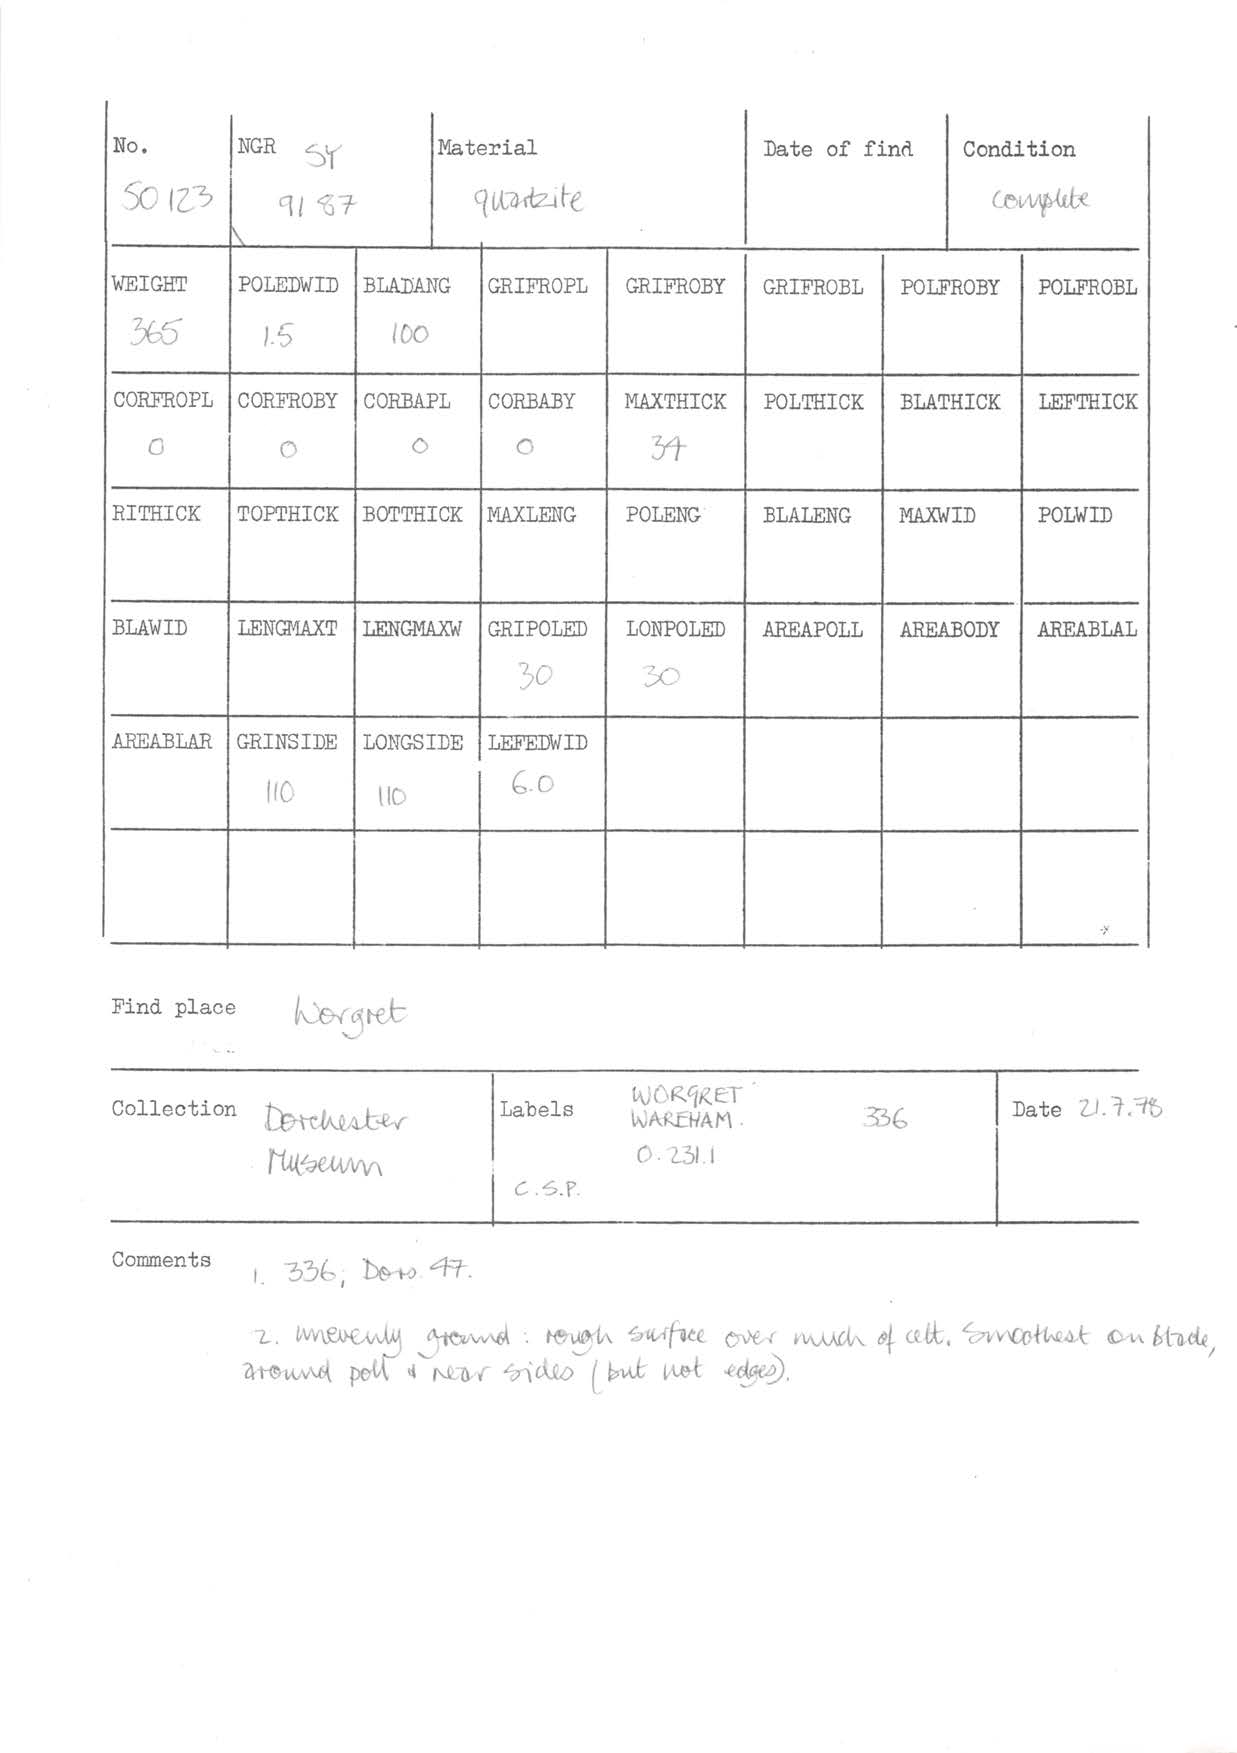 No. NGR SY Material Date of find Condition
SO 123 91 87 quartzite complete
WEIGHT POLEDWID BLADANG GRIFROPL GRIFROBY GRIFROBL POLFROBY POLFROBL
365 1.5 100
CORFROPL CORFROBY CORBAPL CORBABY MAXTHICK POLTHICK BLATHICK LEFTHICK
0 0 0 0 34
RITHICK TOPTHICK BOTTHICK MAXLENG POLENG BLALENG MAXWID POLWID
BLAWID LENGMAXT LENGMAXW GRIPOLED LONPOLED AREAPOLL AREABODY AREABLAL
30 30
AREABLAR GRINSIDE LONGSIDE LEFEDWID
110 110 6.0
Find place Worgret
Collection Dorchester Museum
Labels WORGRET
WAREHAM. 336
0.231.1
C.S.P.
Date 21.7.78
Comments 1. 336; Dors. 47.
2. unevenly ground : rough surface over much of celt. Smoothest on blade,
around poll & near sides (but not edges).